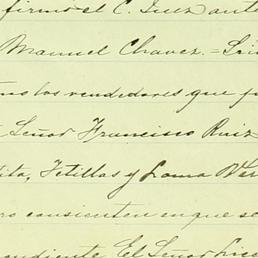 firmo el C. Juez ante
Manuel Chavez. =
mo los vendedores que
Señor Francisco Ruiz
tita, Tetillas y Loma
consienten en que se
pendiente. El Señor